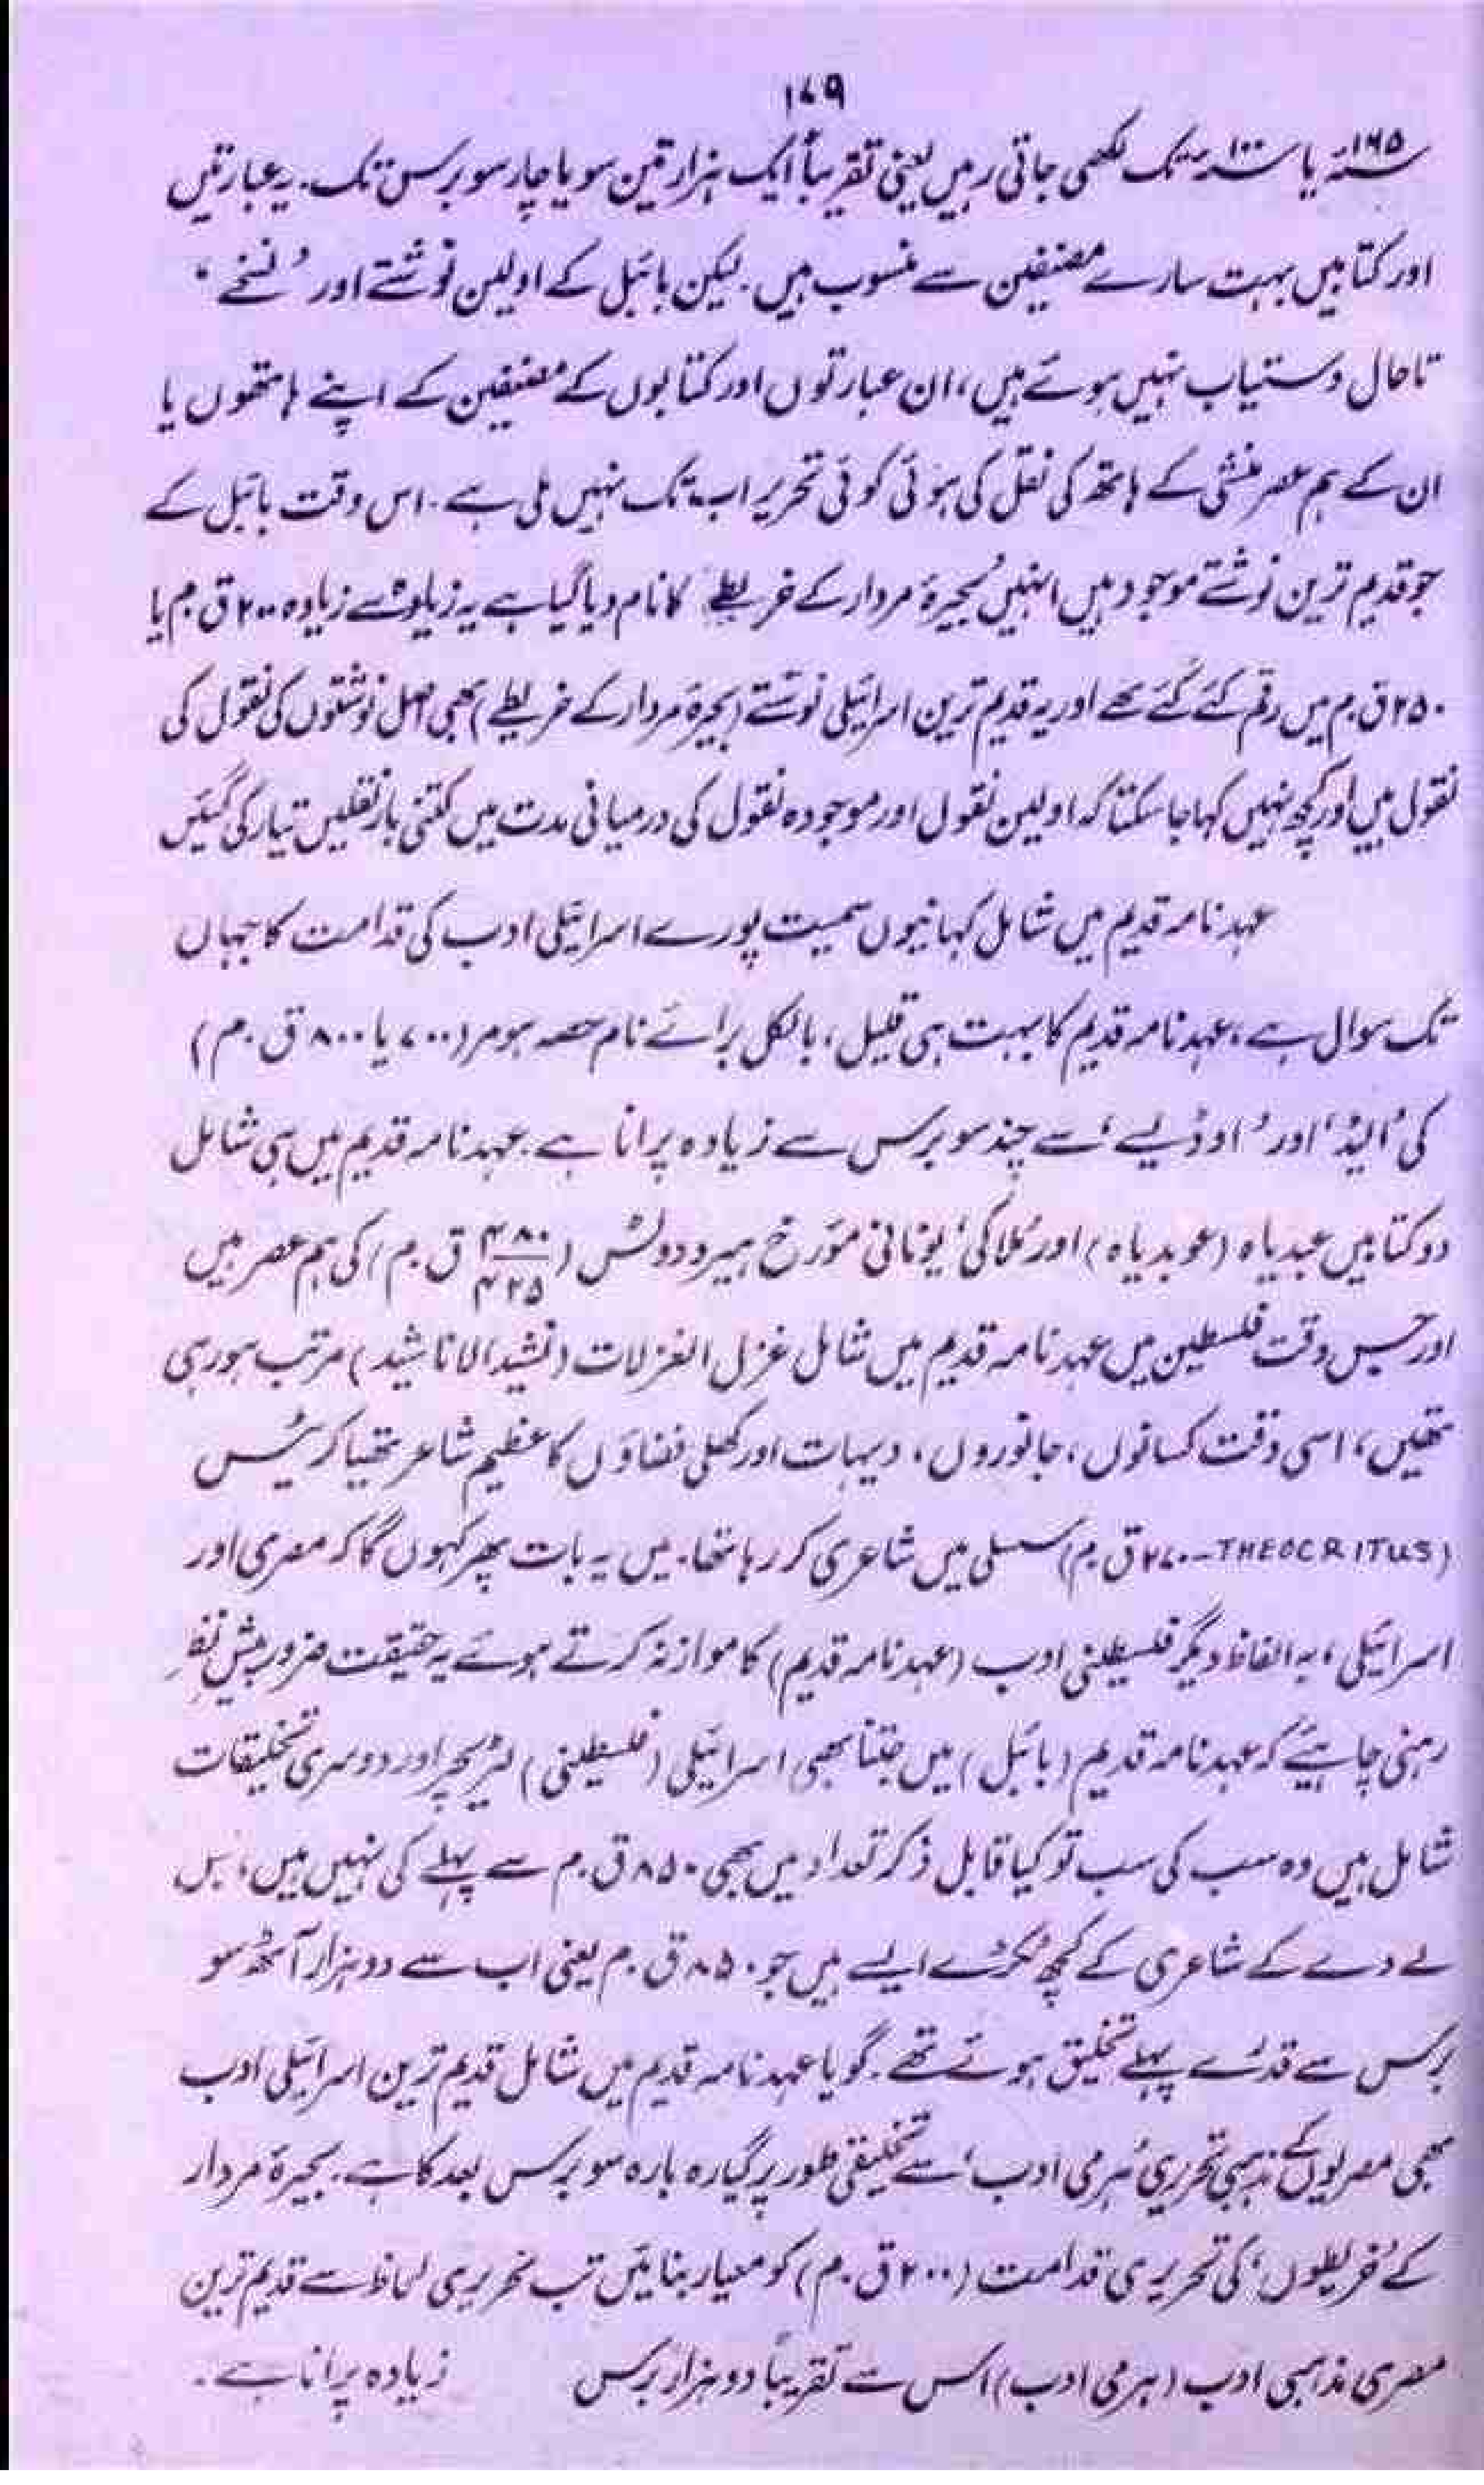 ۱۷۹
۱۶۵ء یا ۱۰۰ء تک لکھی جاتی رہیں یعنی تقریباً ایک ہزار تین سو یا چار سو برس تک۔ یہ عبارتیں
اور کتابیں بہت سارے مصنفین سے منسوب ہیں۔ لیکن بائبل کے اولین نوشتے اور 'نسخے'
تاحال دستیاب نہیں ہوئے ہیں، ان عبارتوں اور کتابوں کے مصنفین کے اپنے ہاتھوں یا
ان کے ہم عصر منشی کے ہاتھ کی نقل کی ہوئی کوئی تحریر اب تک نہیں ملی ہے۔ اس وقت بائبل کے
جو قدیم ترین نوشتے موجود ہیں انہیں 'بحیرۂ مردار کے خریطے' کا نام دیا گیا ہے یہ زیادہ سے زیادہ ۲۰۰ ق۔م یا
۲۵۰ ق۔م میں رقم کئے گئے تھے اور یہ قدیم ترین اسرائیلی نوشتے (بحیرۂ مردار کے خریطے) بھی اصل نوشتوں کی نقول کی
نقول ہیں اور کچھ نہیں کہا جا سکتا کہ اولین نقول اور موجودہ نقول کی درمیانی مدت میں کتنی بار نقلیں تیار کی گئیں
عہد نامہ قدیم میں شامل کہانیوں سمیت پورے اسرائیلی ادب کی قدامت کا جہاں
تک سوال ہے، عہد نامہ قدیم کا بہت ہی قلیل، بالکل برائے نام حصہ ہومر (۷۰۰ یا ۸۰۰ ق۔م)
کی 'الیڈ' اور 'اوڈیسے' سے چند سو برس سے زیادہ پرانا ہے۔ عہد نامہ قدیم میں ہی شامل
دو کتابیں عبدیاہ (عوبدیاہ) اور ملاکی' یونانی مورخ ہیرودوٹس (۴۸۰/۴۲۵ ق۔م) کی ہم عصر ہیں
اور جس وقت فلسطین میں عہد نامہ قدیم میں شامل غزل الغزلات (نشید الاناشید) مرتب ہو رہی
تھیں، اسی وقت کسانوں، جانوروں، دیہات اور کھلی فضاؤں کا عظیم شاعر تھیاکرٹیس
(THEOCRITUS – ۲۷۰ ق۔م) سسلی میں شاعری کر رہا تھا۔ میں یہ بات پھر کہوں گا کہ مصری اور
اسرائیلی، بہ الفاظ دیگر فلسطینی ادب (عہد نامہ قدیم) کا موازنہ کرتے ہوئے یہ حقیقت ضرور پیش نظر
رہنی چاہیئے کہ عہد نامہ قدیم (بائبل) میں جتنا بھی اسرائیلی (فلسطینی) لٹریچر اور دوسری تخلیقات
شامل ہیں وہ سب کی سب تو کیا قابل ذکر تعداد میں بھی ۸۵۰ ق۔م سے پہلے کی نہیں ہیں، بس
لے دے کے شاعری کے کچھ ٹکڑے ایسے ہیں جو ۸۵۰ ق۔م یعنی اب سے دو ہزار آٹھ سو
برس سے قدرے پہلے تخلیق ہوئے تھے۔ گویا عہد نامہ قدیم میں شامل قدیم ترین اسرائیلی ادب
بھی مصریوں کے مذہبی تحریری 'ہرمی ادب' سے تخلیقی طور پر گیارہ بارہ سو برس بعد کا ہے۔ بحیرۂ مردار
کے 'خریطوں' کی تحریری قدامت (۲۰۰ ق۔م) کو معیار بنائیں تب تحریری لحاظ سے قدیم ترین
مصری مذہبی ادب (ہرمی ادب) اس سے تقریباً دو ہزار برس زیادہ پرانا ہے۔